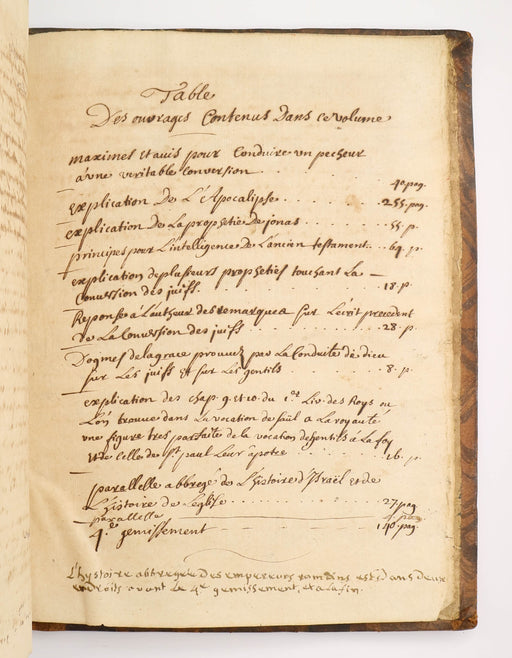 Table
Des ouvrages Contenus Dans ce volume
maximes Et avis pour Conduire un pecheur
a vne veritable Conversion . . . . 40 pag.
Explication De L'Apocalipse . . . . 255. pag.
explication De La prophetie De jonas . . . . 55. p.
principes pour L'intelligence De L'ancien testament . . . 64. p.
explication de plusieurs propheties touchant La
Conversion des juifs . . . . 18. p
Reponse a L'autheur des remarques sur Lécrit precedent
de La Conversion des juifs . . . . 28. p
Dogmes de la grace prouvez par La Conduite de dieu
sur Les juifs Et sur Les gentils . . . . 8. p
explication des chap. 9. et 10. du 1.er Liv. des Roys ou
L'on trouve dans La vocation de saül a La royauté
vne figure tres parfaite de la vocation des gentils a La foy
et de Celle de St. paul Leur apotre . . . . 16. p
parallelle abbregé de L'histoire d'Israël et de
L'histoire de L'eglise . . . . 27 pag
parallelle
4.e gemissement 140. pag.
L'hystoire abbregée Des empereurs romains est dans deux
endroits avant Le 4.e gemissement, et a la fin.